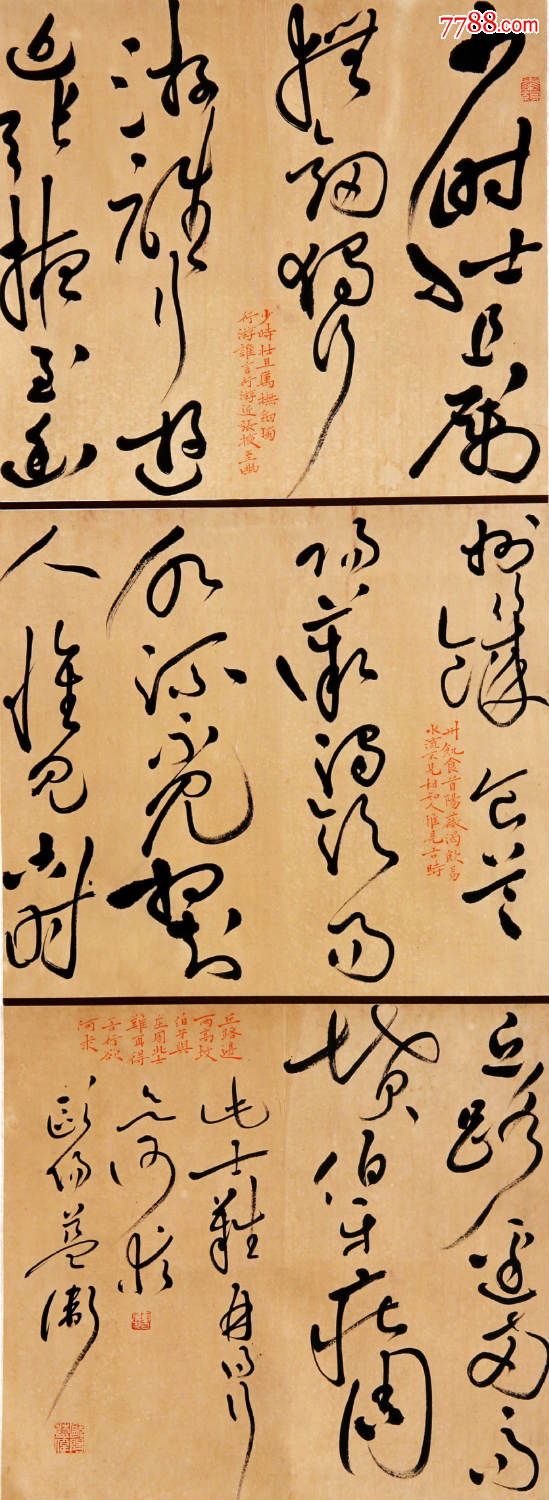 7788.com
少时壮且厲
撫劍獨行
游誰言行遊
近張掖至幽
少時壯且厲撫劍獨
行游誰言行游近張掖至幽
州饑食首
陽薇渴飲易
水流不見相知
人惟見古時
州飢食首陽薇渴飲易
水流不見相知人惟見古時
丘路邊兩高
墳伯牙莊周
此士難再得行
欲何求
歐陽
丘路邊
兩高坟
伯牙與
庄周此士
難再得
吾行欲
河求